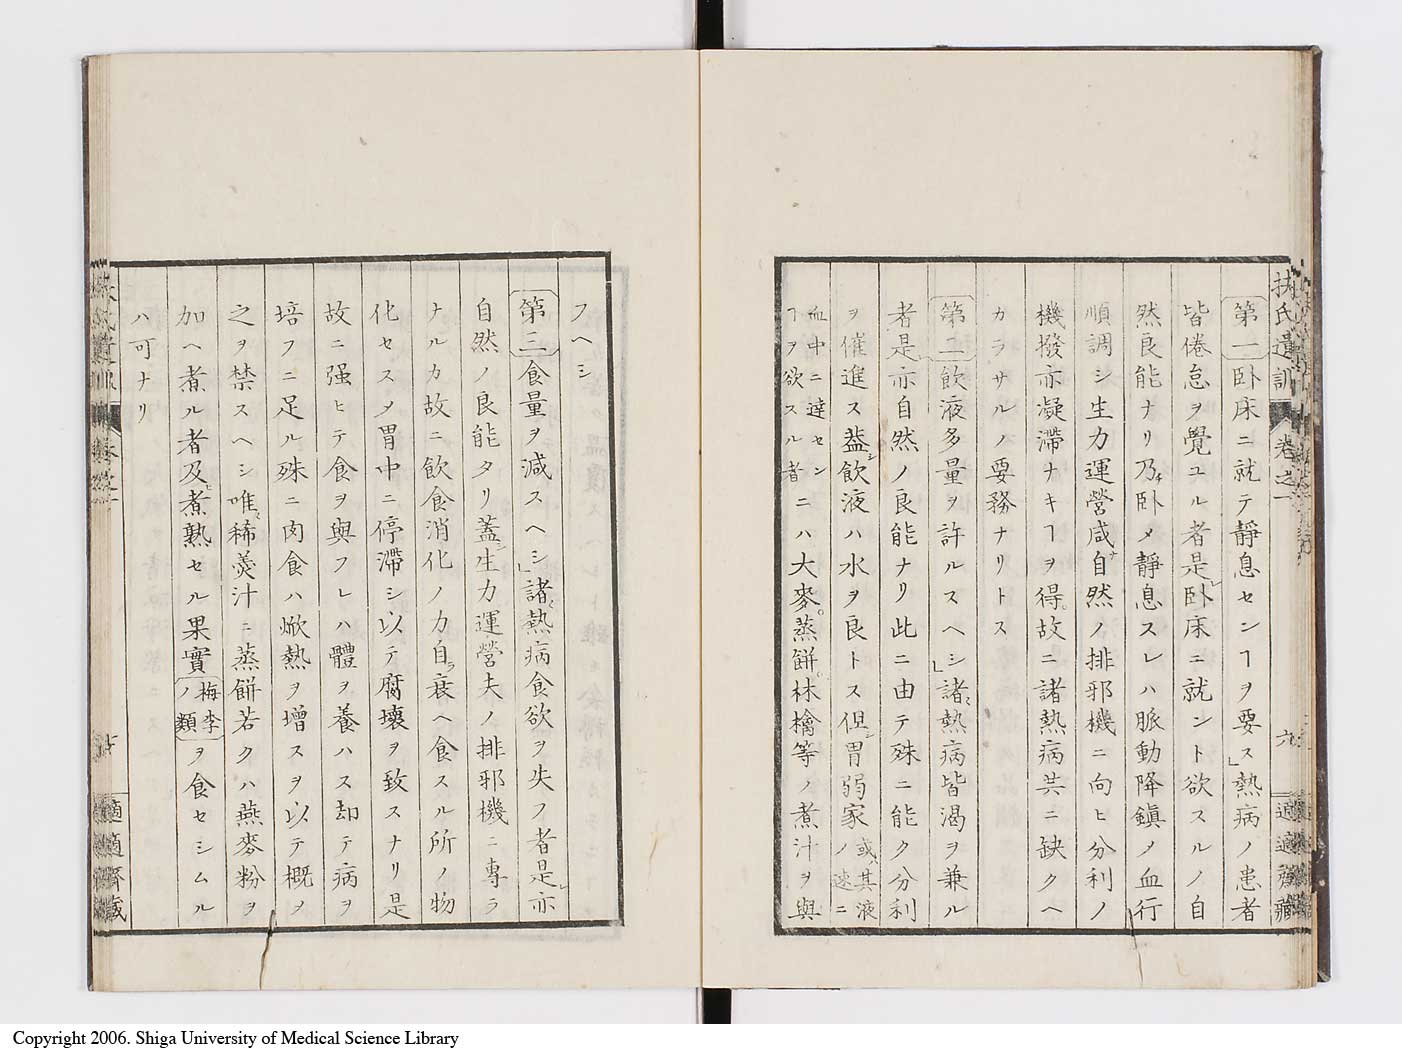 扶氏遺訓 卷之一 九 適適齋藏
第一臥床ニ就テ靜息センヿヲ要ス」熱病ノ患者
皆倦怠ヲ覺ユル者是レ臥床ニ就ント欲スルノ自
然良能ナリ乃チ臥メ靜息スレハ脈動降鎮メ血行
順調シ生力運營咸ナ自然ノ排邪機ニ向ヒ分利ノ
機撥亦凝滯ナキヿヲ得。故ニ諸熱病共ニ缺クヘ
カラサルノ要務ナリトス
第二飲液多量ヲ許ルスヘシ」諸熱病皆渴ヲ兼ル
者是レ亦自然ノ良能ナリ此ニ由テ殊ニ能ク分利
ヲ催進ス葢シ飲液ハ水ヲ良トス但シ胃弱家或ハ其液ノ速ニ
血中ニ達センヿヲ欲スル者ニハ大麥。蒸餅。林檎等ノ煮汁ヲ與
フヘシ
第三食量ヲ減スヘシ」諸熱病食欲ヲ失フ者是レ亦
自然ノ良能タリ蓋シ生力運營夫ノ排邪機ニ專ラ
ナルカ故ニ飲食消化ノ力自ラ衰ヘ食スル所ノ物
化セスメ胃中ニ停滯シ以テ腐壞ヲ致スナリ是
故ニ强ヒテ食ヲ與フレハ體ヲ養ハス却テ病ヲ
培フニ足ル殊ニ肉食ハ焮熱ヲ增スヲ以テ概メ
之ヲ禁スヘシ唯稀羮汁ニ蒸餅若クハ燕麥粉ヲ
加ヘ煮ル者及ヒ煮熟セル果實梅李ノ類ヲ食セシムル
ハ可ナリ
適適齋藏
Copyright 2006. Shiga University of Medical Science Library